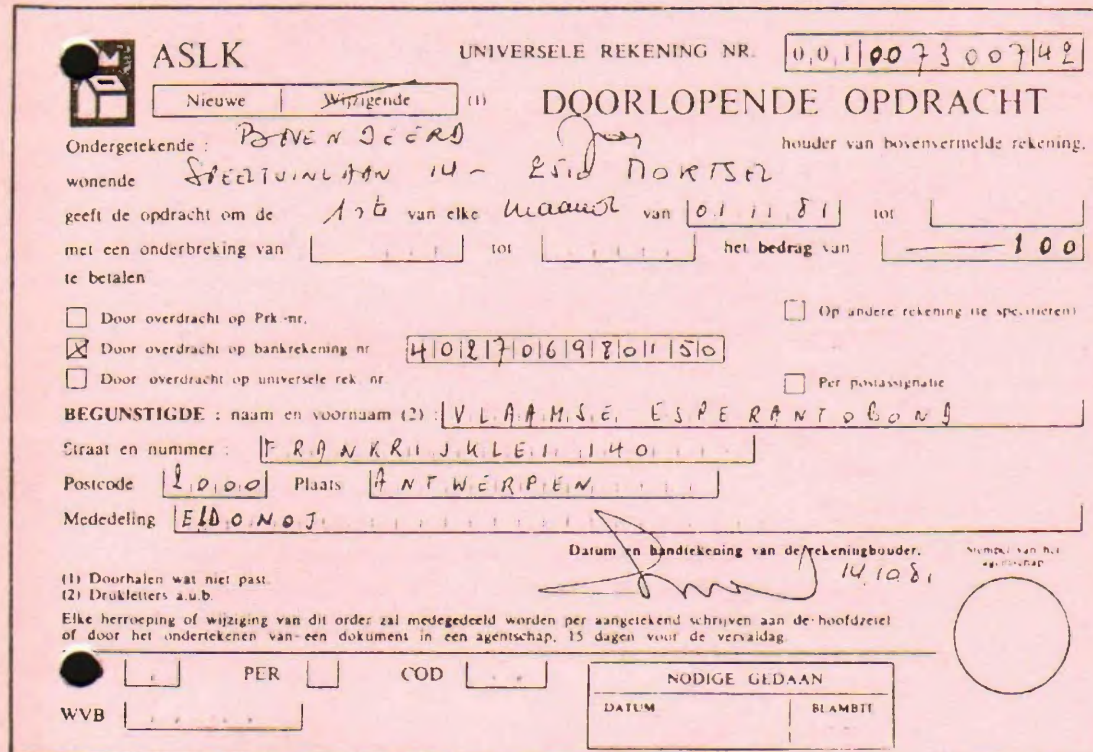 ASLK UNIVERSELE REKENING NR. 001 0073007 42
Nieuwe Wijzigende (1) DOORLOPENDE OPDRACHT
Ondergetekende : houder van bovenvermelde rekening,
wonende SPEELTUINLAAN 14 - 2510 MORTSEL
geeft de opdracht om de 1ste van elke maand van 01 11 81 tot
met een onderbreking van tot het bedrag van 100
te betalen
Door overdracht op Prk.-nr. Op andere rekening (te specifieren)
X Door overdracht op bankrekening nr 402706980150
Door overdracht op universele rek. nr. Per postassignatie
BEGUNSTIGDE : naam en voornaam (2) : VLAAMSE ESPERANTOBOND
Straat en nummer : FRANKRIJKLEI 140
Postcode 2000 Plaats ANTWERPEN
Mededeling ELDONOJ
Datum en handtekening van de rekeninghouder. Stempel van het
14.10.81 agentschap
(1) Doorhalen wat niet past.
(2) Drukletters a.u.b.
Elke herroeping of wijziging van dit order zal medegedeeld worden per aangetekend schrijven aan de hoofdzetel
of door het ondertekenen van een dokument in een agentschap, 15 dagen voor de vervaldag.
PER COD NODIGE GEDAAN
WVB DATUM BLAMBTE